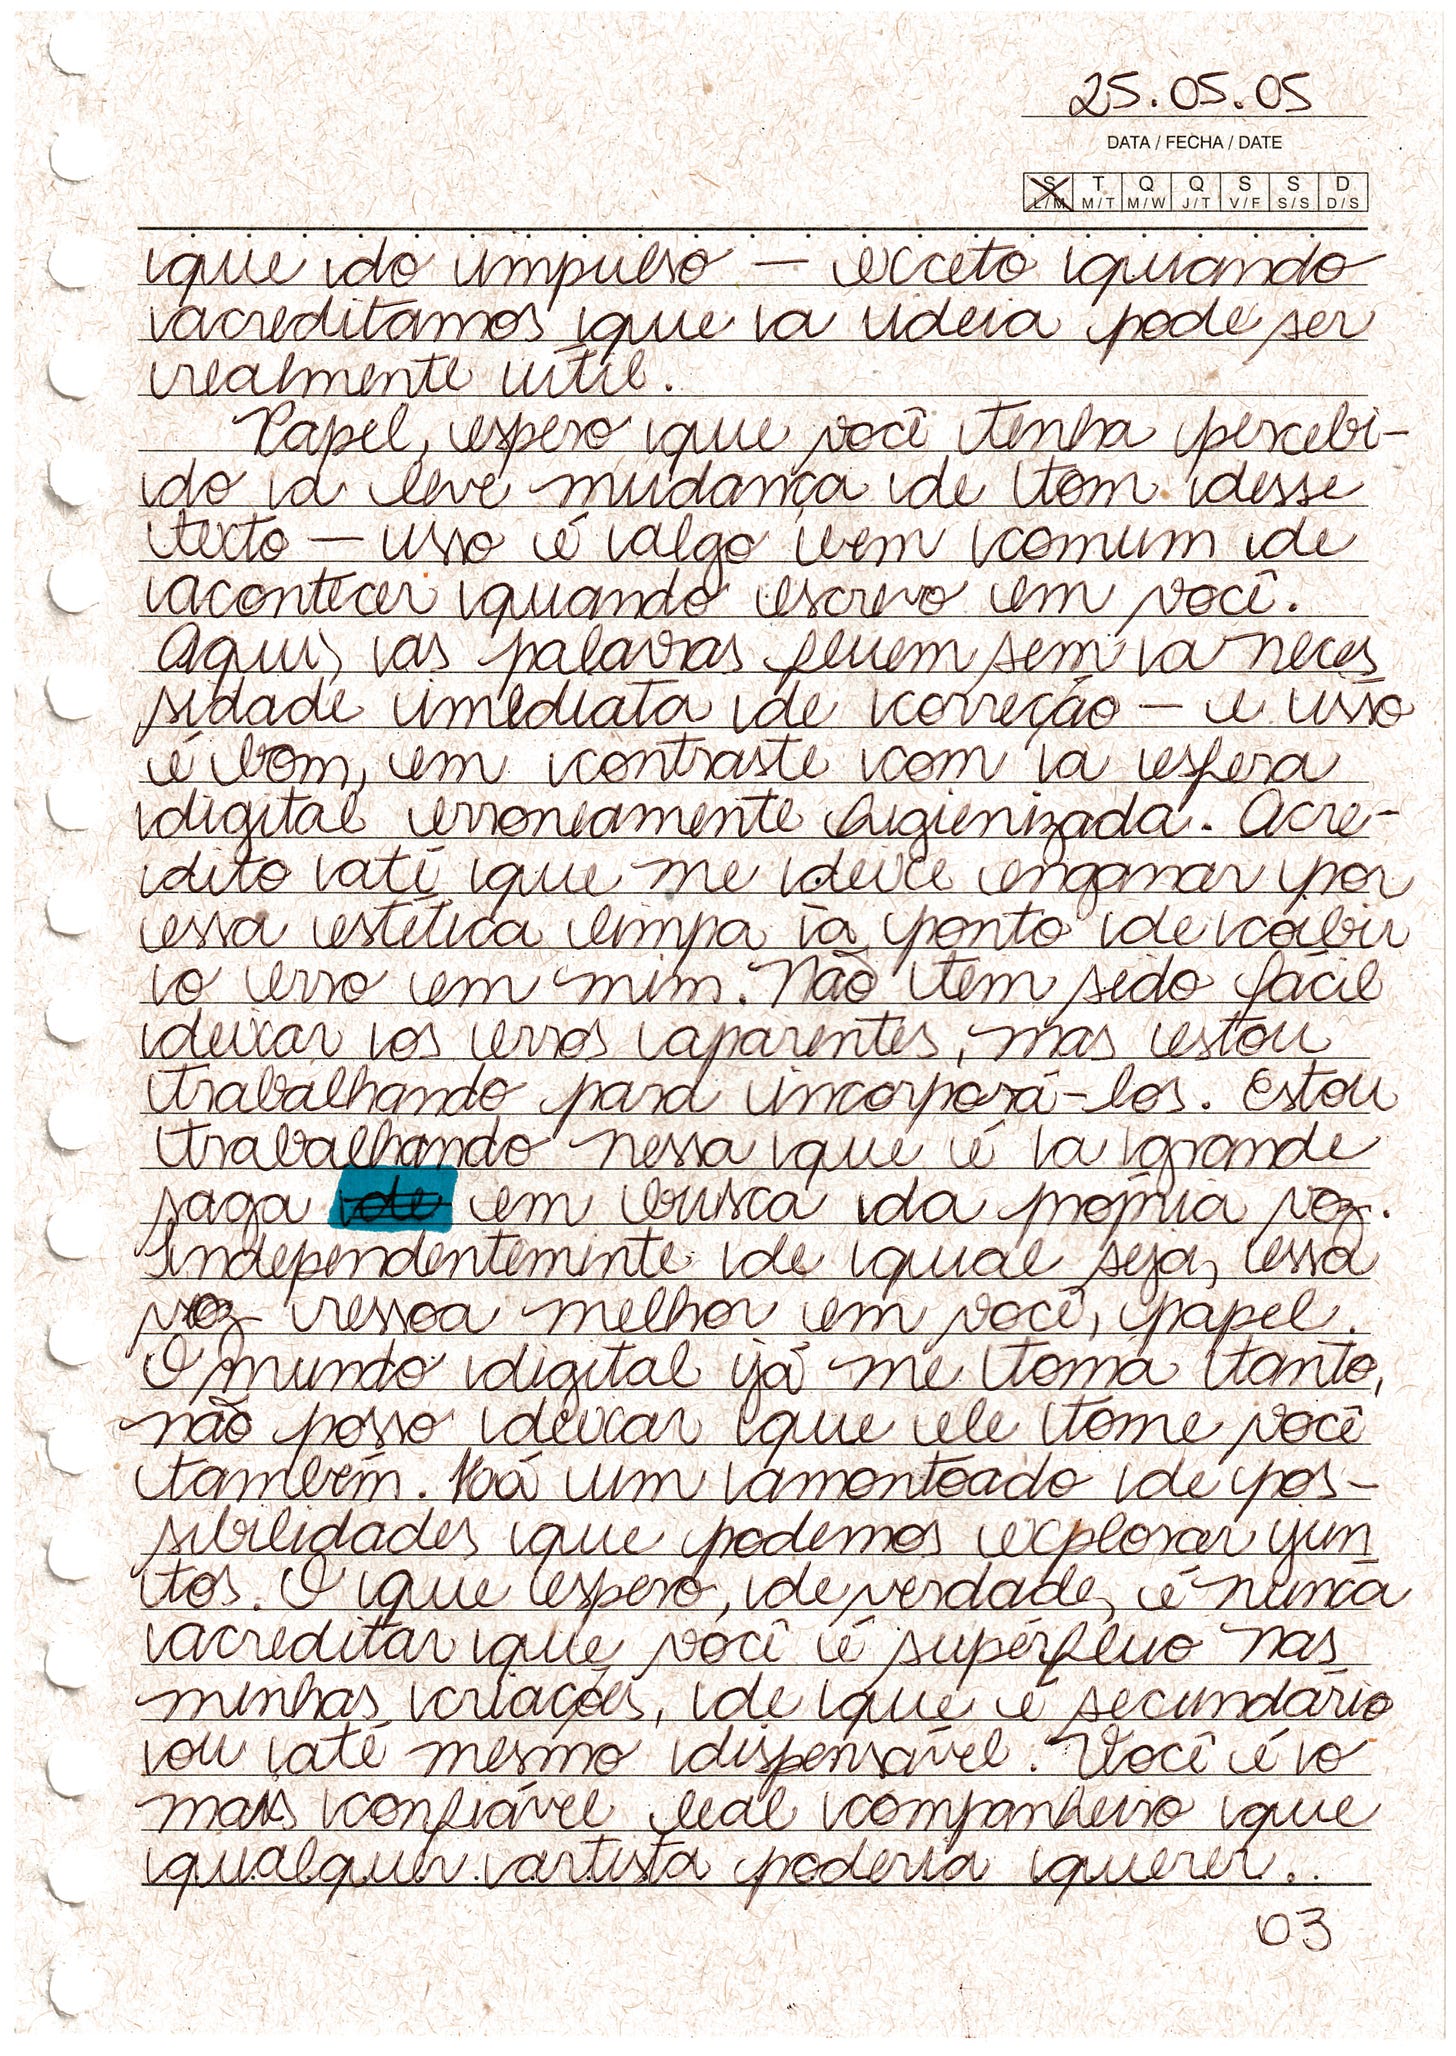 25.05.05
DATA / FECHA / DATE
S T Q Q S S D
L/M M/T M/W J/T V/F S/S D/S
que do impulso — exceto quando
acreditamos que a ideia pode ser
realmente útil.
Papel, espero que você tenha percebi-
do a leve mudança de tom desse
texto — isso é algo bem comum de
acontecer quando escrevo em você.
Aqui, as palavras fluem sem a neces
sidade imediata de correção — e isso
é bom, em contraste com a esfera
digital erroneamente higienizada. Acre-
dito até que me deixe enganar por
essa estética limpa à ponto de coibir
o erro em mim. Não tem sido fácil
deixar os erros aparentes, mas estou
trabalhando para incorporá-los. Estou
trabalhando nessa que é a grande
saga de em busca da própria voz.
Independentemente de qual seja, essa
voz ressoa melhor em você, papel.
O mundo digital já me toma tanto,
não posso deixar que ele tome você
também. Há um amontoado de pos-
sibilidades que podemos explorar jun
tos. O que espero, de verdade, é nunca
acreditar que você é supérfluo nas
minhas criações, de que é secundário
ou até mesmo dispensável. Você é o
mais confiável leal companheiro que
qualquer artista poderia querer..
03